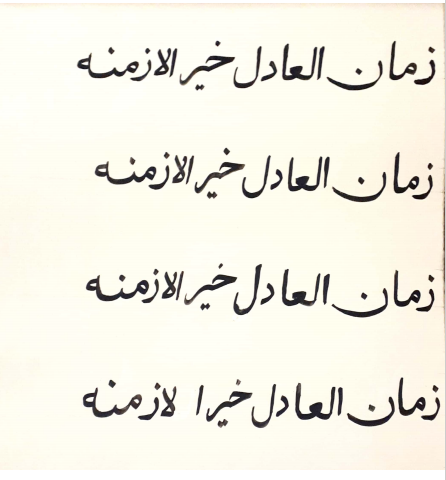 زمان العادل خير الازمنه
زمان العادل خير الازمنه
زمان العادل خير الازمنه
زمان العادل خيرا لازمنه